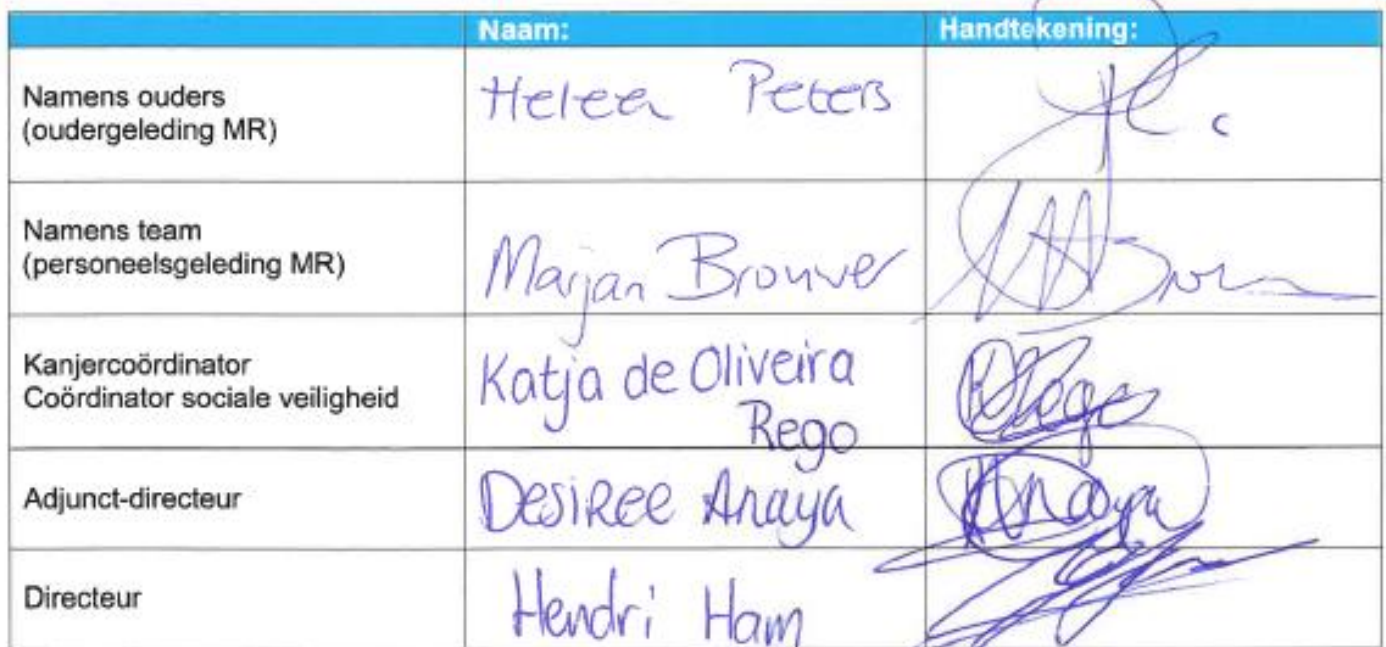 Naam: Handtekening:
Namens ouders
(oudergeleding MR)
Heleen Peters
Namens team
(personeelsgeleding MR)
Marjan Brouwer
Kanjercoördinator
Coördinator sociale veiligheid
Katja de Oliveira
Rego
Adjunct-directeur
Desiree Anaya
Anaya
Directeur
Hendri Ham